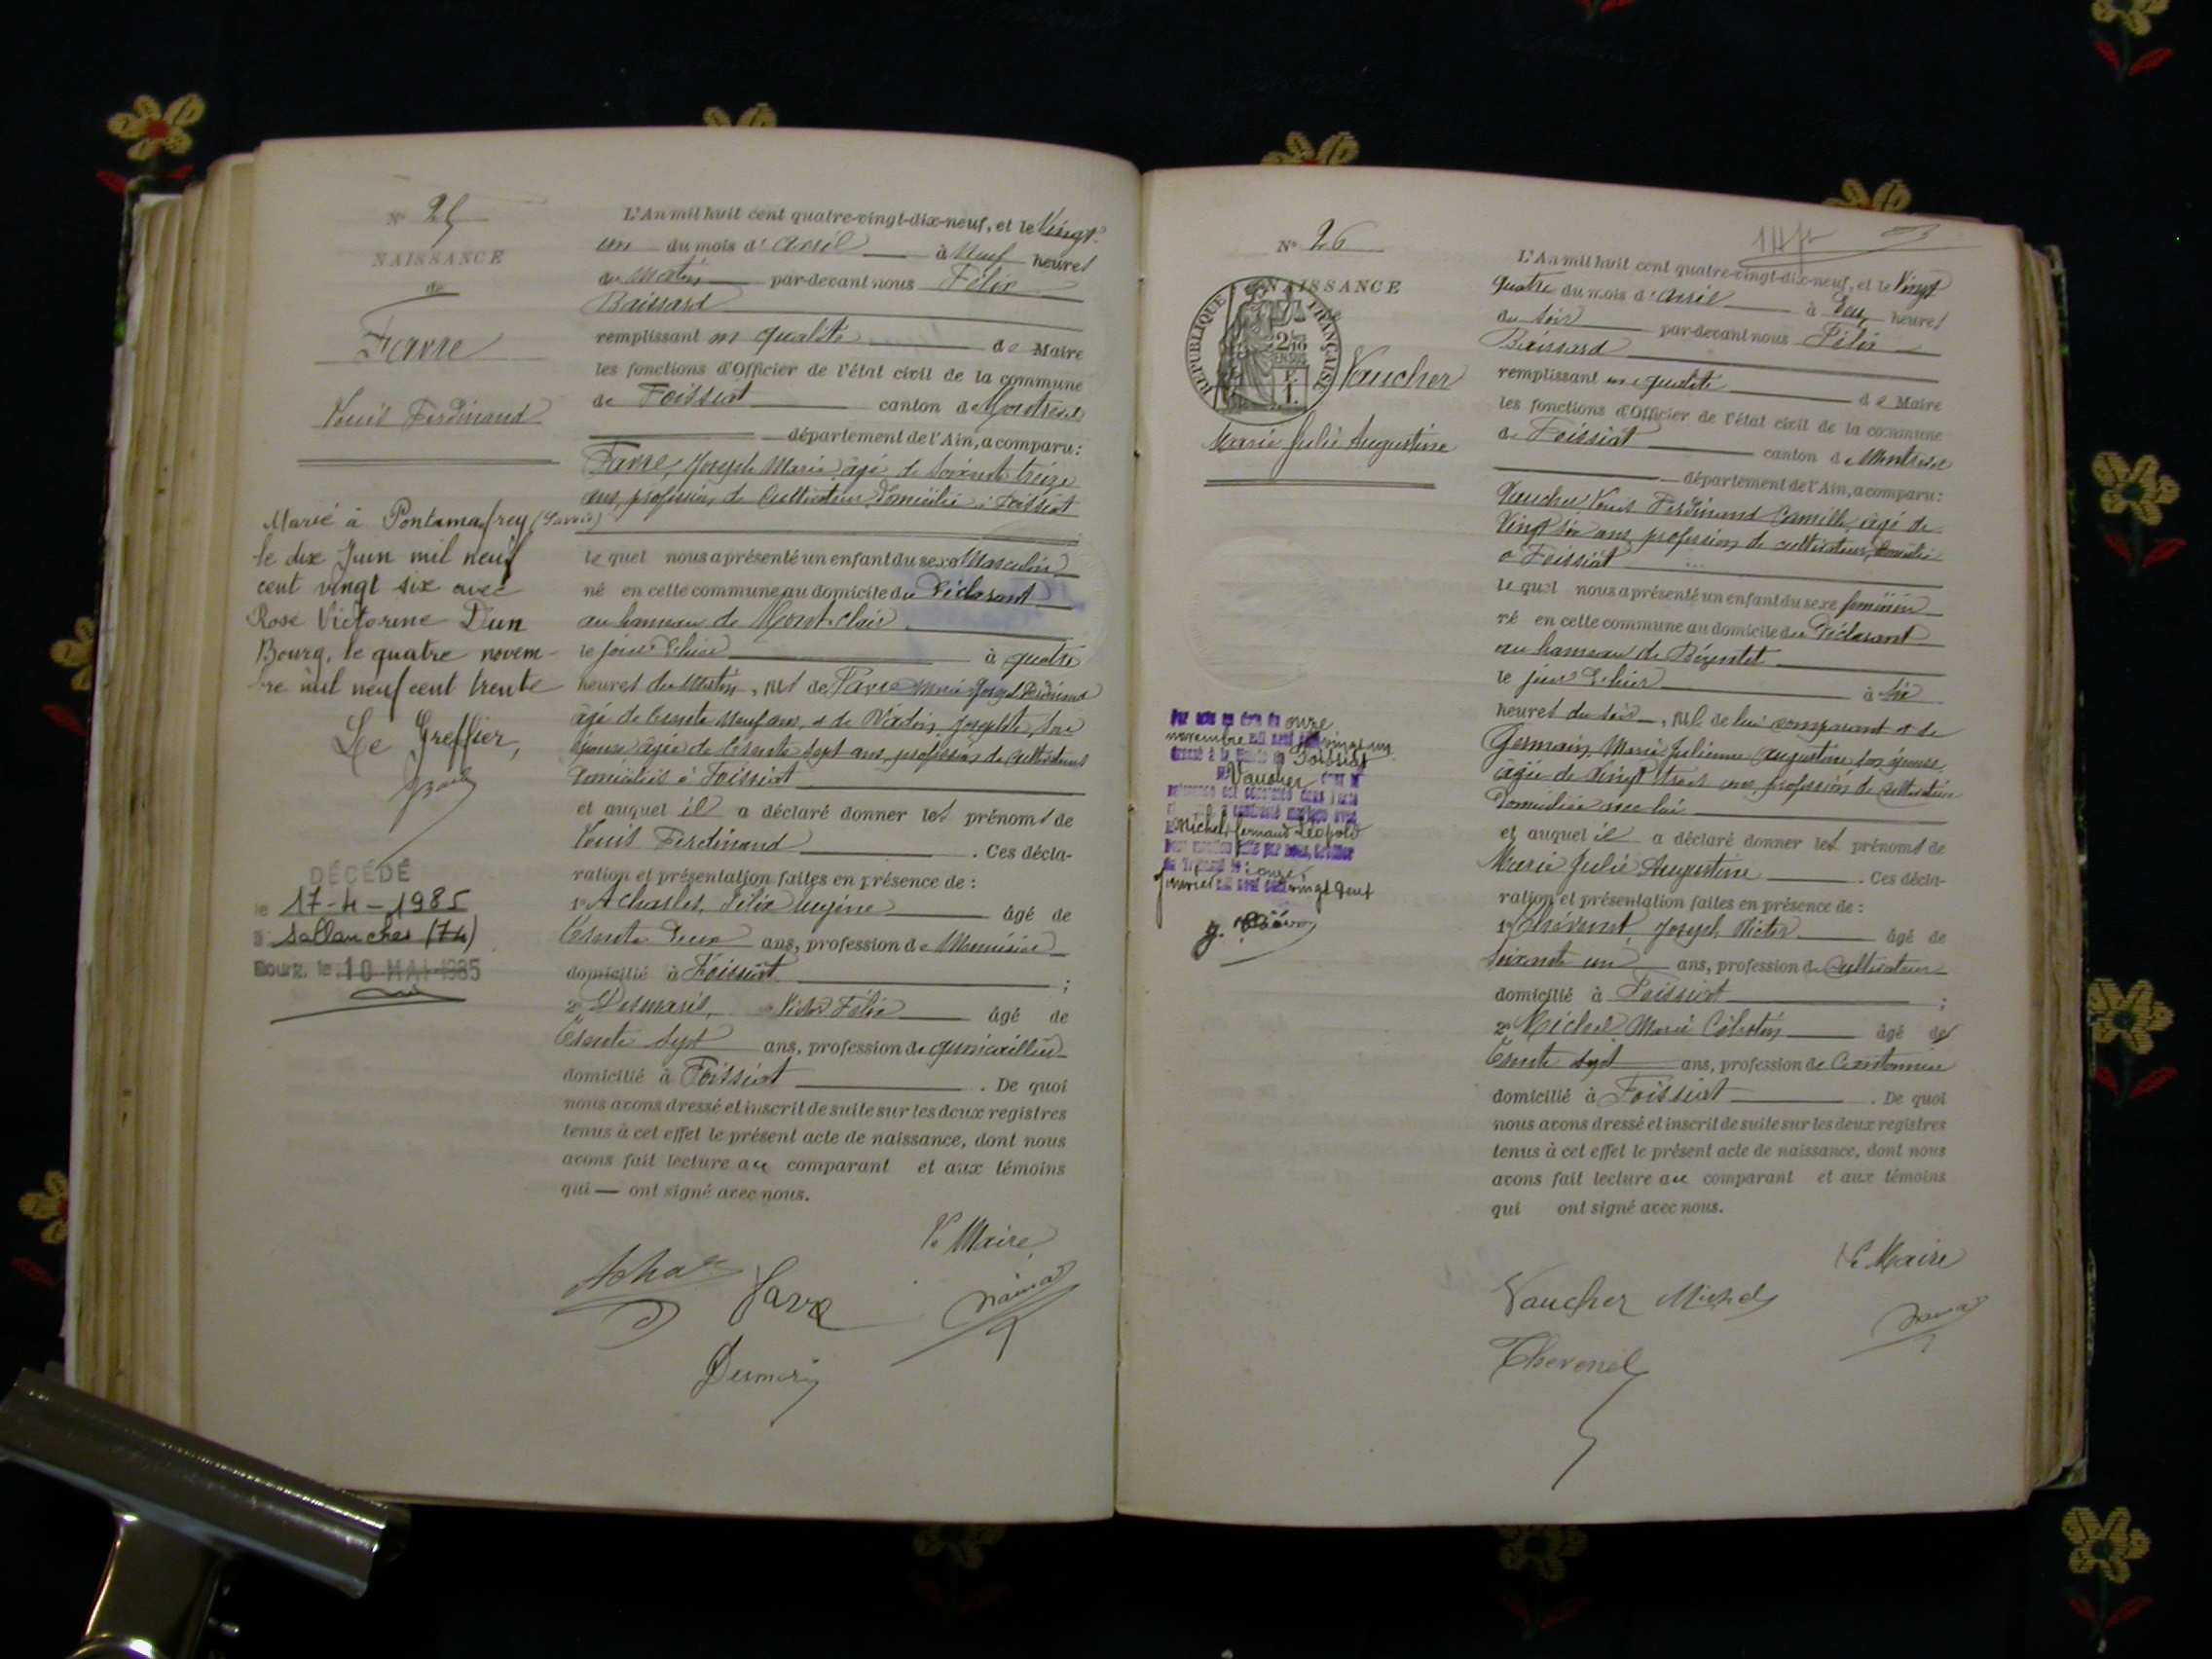 N° 25
NAISSANCE
de
Favre
Louis Ferdinand
Marié à Pontamafrey (Savoie)
le dix Juin mil neuf
cent vingt six avec
Rose Victorine Dun
Bourg, le quatre novem-
bre mil neuf cent trente
Le Greffier,
DÉCÉDÉ
le 17-4-1985
à Sallanches (74)
Bourg, le 10 MAI 1985
L'An mil huit cent quatre-vingt-dix-neuf, et le Vingt
un du mois d'avril à Neuf heures
du Matin par-devant nous Félix
Baissard
remplissant en qualité de Maire
les fonctions d'Officier de l'état civil de la commune
de Foissiat canton de Montrevel
département de l'Ain, a comparu:
Favre, Joseph Marie, âgé de soixante treize
ans, profession de Cultivateur, domicilié à Foissiat
lequel nous a présenté un enfant du sexe Masculin
né en cette commune au domicile du Déclarant
au hameau de Mont-clair
le jour d'hier à quatre
heures du Matin, fils de Favre Marie Joseph Ferdinand
âgé de trente neuf ans, et de Josephte, son
épouse âgée de trente sept ans, profession de cultivateurs
domiciliés à Foissiat
et auquel il a déclaré donner les prénoms de
Louis Ferdinand . Ces décla-
ration et présentation faites en présence de :
1° Acharles, Félix Eugène âgé de
trente deux ans, profession de Menuisier
domicilié à Foissiat ;
2° Desmaris, Victor Félix âgé de
trente sept ans, profession de quincaillier
domicilié à Foissiat . De quoi
nous avons dressé et inscrit de suite sur les deux registres
tenus à cet effet le présent acte de naissance, dont nous
avons fait lecture au comparant et aux témoins
qui — ont signé avec nous.
Le Maire
Favre
N° 26
NAISSANCE
REPUBLIQUE FRANÇAISE
Vaucher
Marie Julie Augustine
onze
novembre
Foissiat
Vaucher
Michel Fernand Léopold
L'An mil huit cent quatre-vingt-dix-neuf, et le Vingt
quatre du mois d'avril à deux heures
du soir par-devant nous Félix
Baissard
remplissant en qualité de Maire
les fonctions d'Officier de l'état civil de la commune
de Foissiat canton de Montrevel
département de l'Ain, a comparu:
Vaucher, Louis Ferdinand Camille, âgé de
Vingt six ans, profession de cultivateur, domicilié
à Foissiat
lequel nous a présenté un enfant du sexe féminin
né en cette commune au domicile du Déclarant
au hameau de
le jour d'hier à six
heures du soir, fil de lui comparant et de
Germain, Marie Julienne Augustine son épouse
âgée de vingt trois ans, profession de cultivatrice
domiciliée avec lui
et auquel il a déclaré donner les prénoms de
Marie Julie Augustine . Ces décla-
ration et présentation faites en présence de :
1° Thévenet, Joseph Victor âgé de
soixante un ans, profession de Cultivateur
domicilié à Foissiat ;
2° Michel Marie Célestin âgé de
trente sept ans, profession de Cantonnier
domicilié à Foissiat . De quoi
nous avons dressé et inscrit de suite sur les deux registres
tenus à cet effet le présent acte de naissance, dont nous
avons fait lecture au comparant et aux témoins
qui ont signé avec nous.
Le Maire
Vaucher Michel
Thevenet